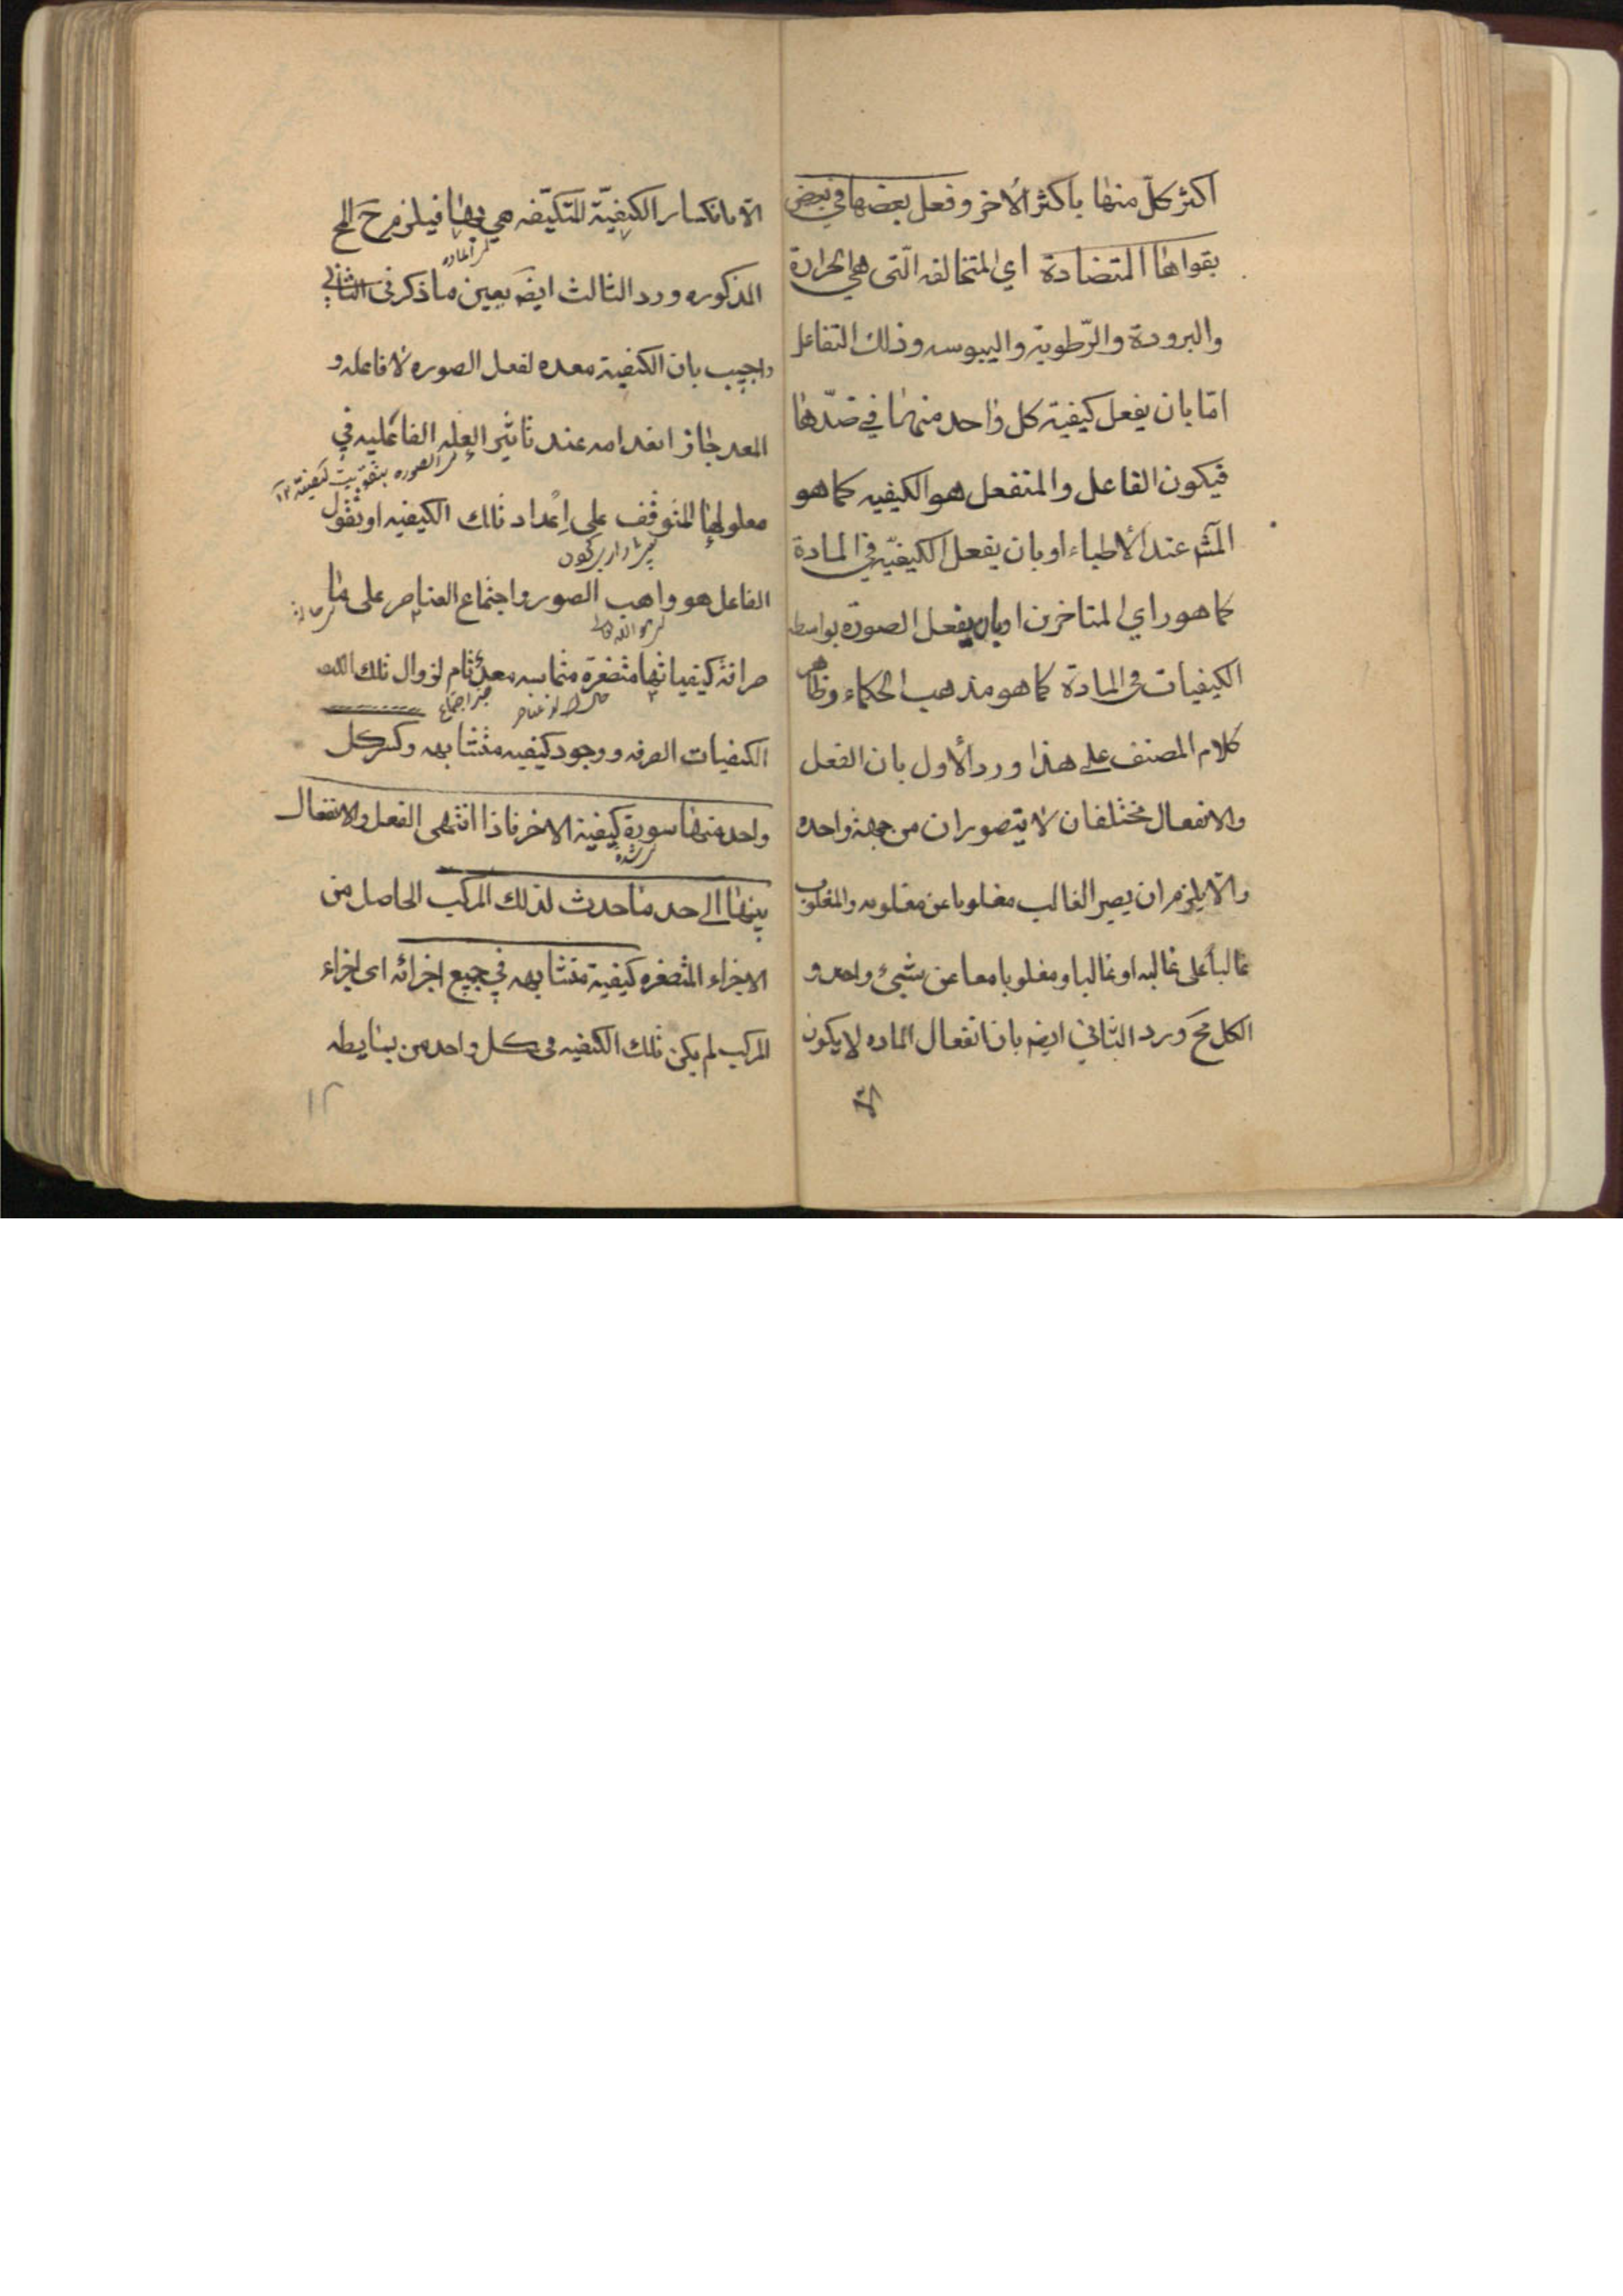 اكثر كلّ منها باكثر الاخر وفعل بعضها في بعض
بقواها المتضادة اي المتخالفه الّتى هي الحرارة
والبرودة والرّطوبة واليبوسه وذلك التفاعل
امّا بان يفعل كيفية كل واحد منهما في ضدّها
فيكون الفاعل والمنفعل هو الكيفيه كما هو
المشـ عند الأطباء او بان يفعل الكيفيّه في المادة
كما هو راي المتاخرن او بان يفعل الصورة بواسطه
الكيفيات فى المادة كما هو مذهب الحكماء وظاهر
كلام المصنف على هذا ورد الأول بان الفعل
والانفعال مختلفان لا يتصوران من جهة واحده
والّا يلزم ان يصير الغالب مغلوبا عن مغلوبه والمغلوب
غالباً على غالبه او غالبا ومغلوبا معا عن شيئ واحد و
الكل مح ورد الثاني ايضـ بان انفعال الماده لا يكون
الّا
الّا بانكسار الكيفيّة المتكيّفه هي بها فيلزم ح المح
اى المادة
المذكوره ورد الثالث ايضـ بعين ما ذكر فى الثاني
واجيب بان الكيفية معده لفعل الصوره لا فاعله و
المعد جاز انعدامه عند تاثير العله الفاعليه في
معلولها المتوقف على اِعداد تلك الكيفيه او نقول
الفاعل هو واهب الصور واجتماع العناصر على ما
صرافة كيفياتها متصغرة متماسه معدّ تام لزوال تلك
الكيفيات الصرفه ووجود كيفيه متشابهه وكسر كل
واحد منها سورة كيفية الاخر فاذا انتهى الفعل والانفعال
بينها الى حد ما حدث لذلك المركب الحاصل من
الاجزاء المتصغره كيفية متشابهه في جميع اجزائه اى اجزاء
المركب لم يكن تلك الكيفيه فى كل واحد من بسايطه
١٢